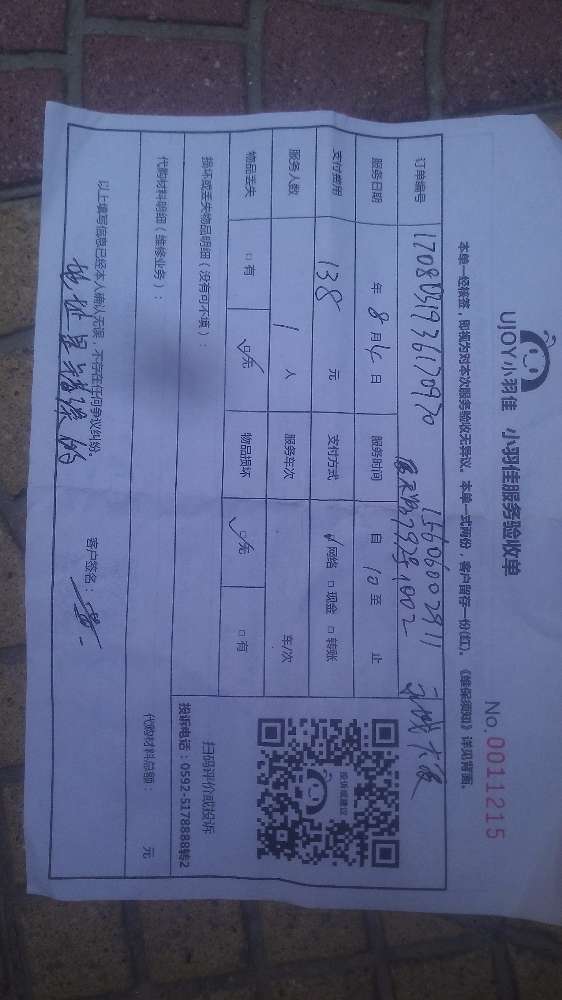 UJOY小羽佳 小羽佳服务验收单
No.0011215
本单一经核签，即视为对本次服务验收无异议。本单一式两份，客户留存一份(红)。《维保须知》详见背面。
订单编号 15606002911
服务日期 年 8 月 日 服务时间 自 10 至 止
支付费用 138 元 支付方式 √网络 □现金 □转账
服务人数 1 人 服务车次 车/次
物品丢失 □有 ☑无 物品损坏 ☑无 □有
损坏或丢失物品明细（没有可不填）：
扫码评价或投诉
投诉电话：0592-5178888转2
投诉或建议
代购材料明细（维修业务）： 代购材料总额： 元
以上填写信息已经本人确认无误，不存在任何争议纠纷。
客户签名：